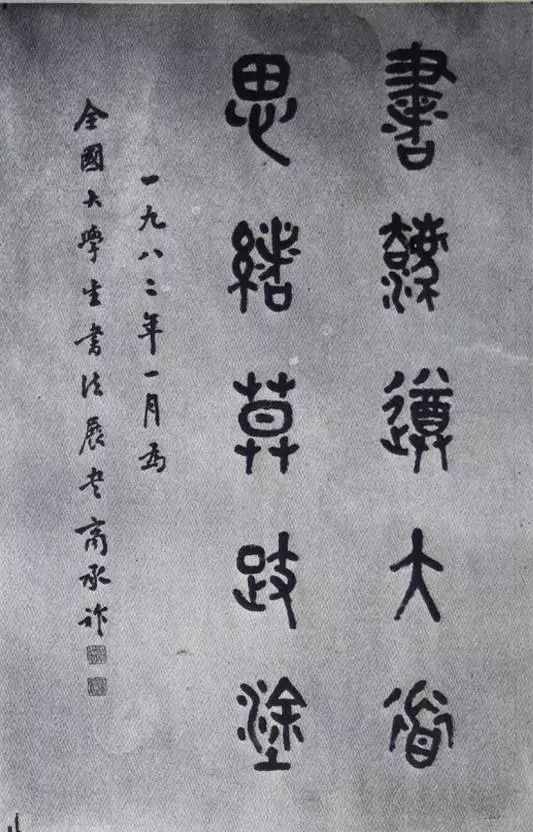 書灋遵大道
思緒莫跂塗
一九八二年一月為
全國大學生書法展書商承祚